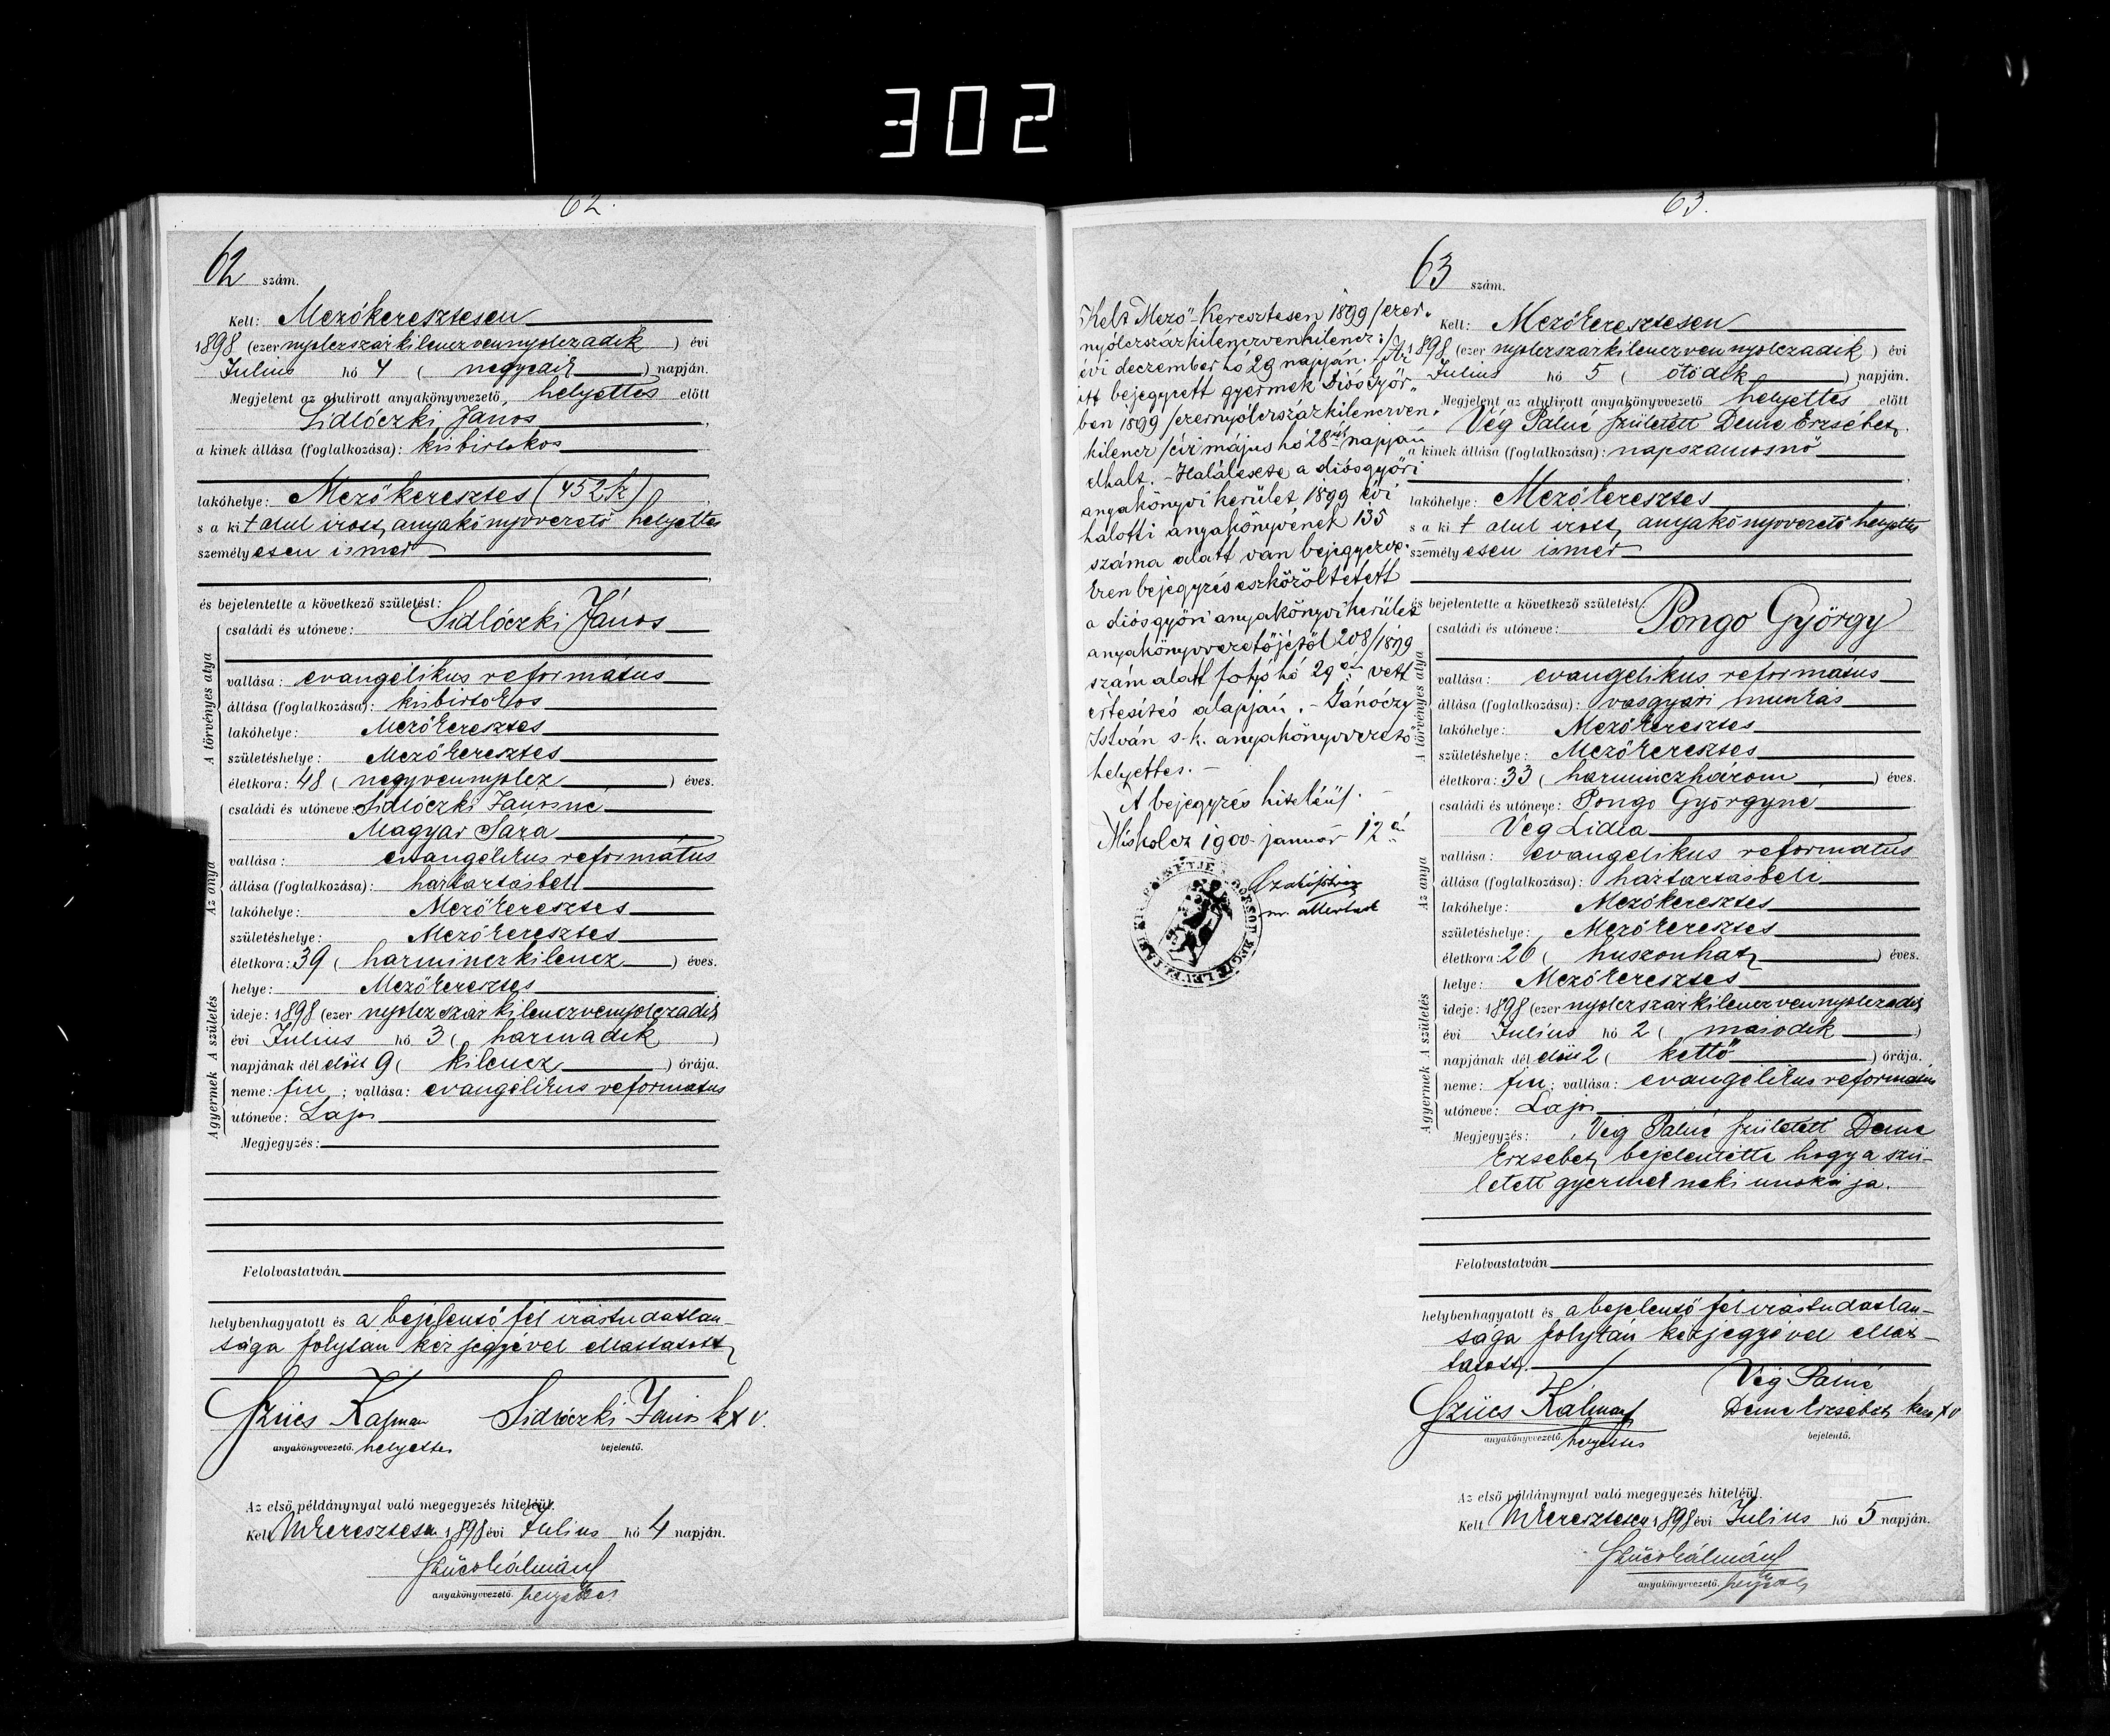 302
62.
62 szám.
Kelt: Mezőkeresztesen
1898 (ezer nyolczszázkilenczvennyolczadik) évi
Julius hó 4 (negyedik) napján.
Megjelent az alulirott anyakönyvvezető helyettes előtt
Sidlóczki János
a kinek állása (foglalkozása): kisbirtokos
lakóhelye: Mezőkeresztes (452 h)
s a kit alul irott anyakönyvvezető helyettes
személyesen ismer
és bejelentette a következő születést:
A törvényes atya
családi és utóneve: Sidlóczki János
vallása: evangélikus református
állása (foglalkozása): kisbirtokos
lakóhelye: Mezőkeresztes
születéshelye: Mezőkeresztes
életkora: 48 (negyvennyolcz) éves.
Az anya
családi és utóneve: Sidlóczki Jánosné
Magyar Sára
vallása: evangélikus református
állása (foglalkozása): háztartásbeli
lakóhelye: Mezőkeresztes
születéshelye: Mezőkeresztes
életkora: 39 (harminczkilencz) éves.
A születés
helye: Mezőkeresztes
ideje: 1898 (ezer nyolczszázkilenczvennyolczadik
évi Julius hó 3 (harmadik)
napjának dél előtt 9 (kilencz) órája.
A gyermek
neme: fiu; vallása: evangélikus református
utóneve: Lajos
Megjegyzés:
Felolvastatván
helybenhagyatott és a bejelentő fél irástudatlan-
sága folytán kézjegyével elláttatott
Szücs Kálmán Sidlóczki János k x v.
anyakönyvvezető. helyettes bejelentő.
Az első példánynyal való megegyezés hiteléül.
Kelt MKeresztesen 1898 évi Julius hó 4 napján.
Szücs Kálmán
anyakönyvvezető. helyettes
63.
63 szám.
Kelt Mező-Keresztesen 1899 /ezer-
nyólczszázkilenczvenkilencz:/
évi deczember hó 29 napján. Az
itt bejegyzett gyermek Diósgyőr-
ben 1899 /ezernyólczszázkilenczven-
kilencz/ évi május hó 28ik napján
elhalt. - Halálesete a diósgyőri
anyakönyvi kerület 1899 évi
halotti anyakönyvének 135
száma alatt van bejegyezve.
Ezen bejegyzés eszközöltetett
a diósgyőri anyakönyvi kerület
anyakönyvvezetőjétől 208/1899
szám alatt folyó hó 29én vett
értesités alapján. - Jánóczy
István s.k. anyakönyvvezető
helyettes. -
A bejegyzés hiteléül.
Miskolcz 1900. január 12én
Kelt: Mezőkeresztesen
1898 (ezer nyolczszázkilenczvennyolczadik) évi
Julius hó 5 (ötödik) napján.
Megjelent az alulirott anyakönyvvezető helyettes előtt
Vég Pálné született Deme Erzsébet
a kinek állása (foglalkozása): napszámosnő
lakóhelye: Mezőkeresztes
s a kit alul irott anyakönyvvezető helyettes
személyesen ismer
és bejelentette a következő születést:
A törvényes atya
családi és utóneve: Pongo György
vallása: evangélikus református
állása (foglalkozása): vasgyári munkás
lakóhelye: Mezőkeresztes
születéshelye: Mezőkeresztes
életkora: 33 (harminczhárom) éves.
Az anya
családi és utóneve: Pongo Györgyné
Vég Lidia
vallása: evangelikus református
állása (foglalkozása): háztartásbeli
lakóhelye: Mezőkeresztes
születéshelye: Mezőkeresztes
életkora: 26 (huszonhat) éves.
A születés
helye: Mezőkeresztes
ideje: 1898 (ezer nyolczszázkilenczvennyolczadik
évi Julius hó 2 (második)
napjának dél előtt 2 (kettő) órája.
A gyermek
neme: fiu; vallása: evangélikus református
utóneve: Lajos
Megjegyzés: Vég Pálné született Deme
Erzsébet, bejelentette hogy a szü-
letett gyermek neki unokája.
Felolvastatván
helybenhagyatott és a bejelentő fél irástudatlan-
sága folytán kézjegyével ellát-
tatott.
Vég Pálné
Szücs Kálmán Deme Erzsébet kéz x v
anyakönyvvezető. helyettes bejelentő.
Az első példánynyal való megegyezés hiteléül.
Kelt MKeresztesen 1898 évi Julius hó 5 napján.
Szücs Kálmán
anyakönyvvezető. helyettes